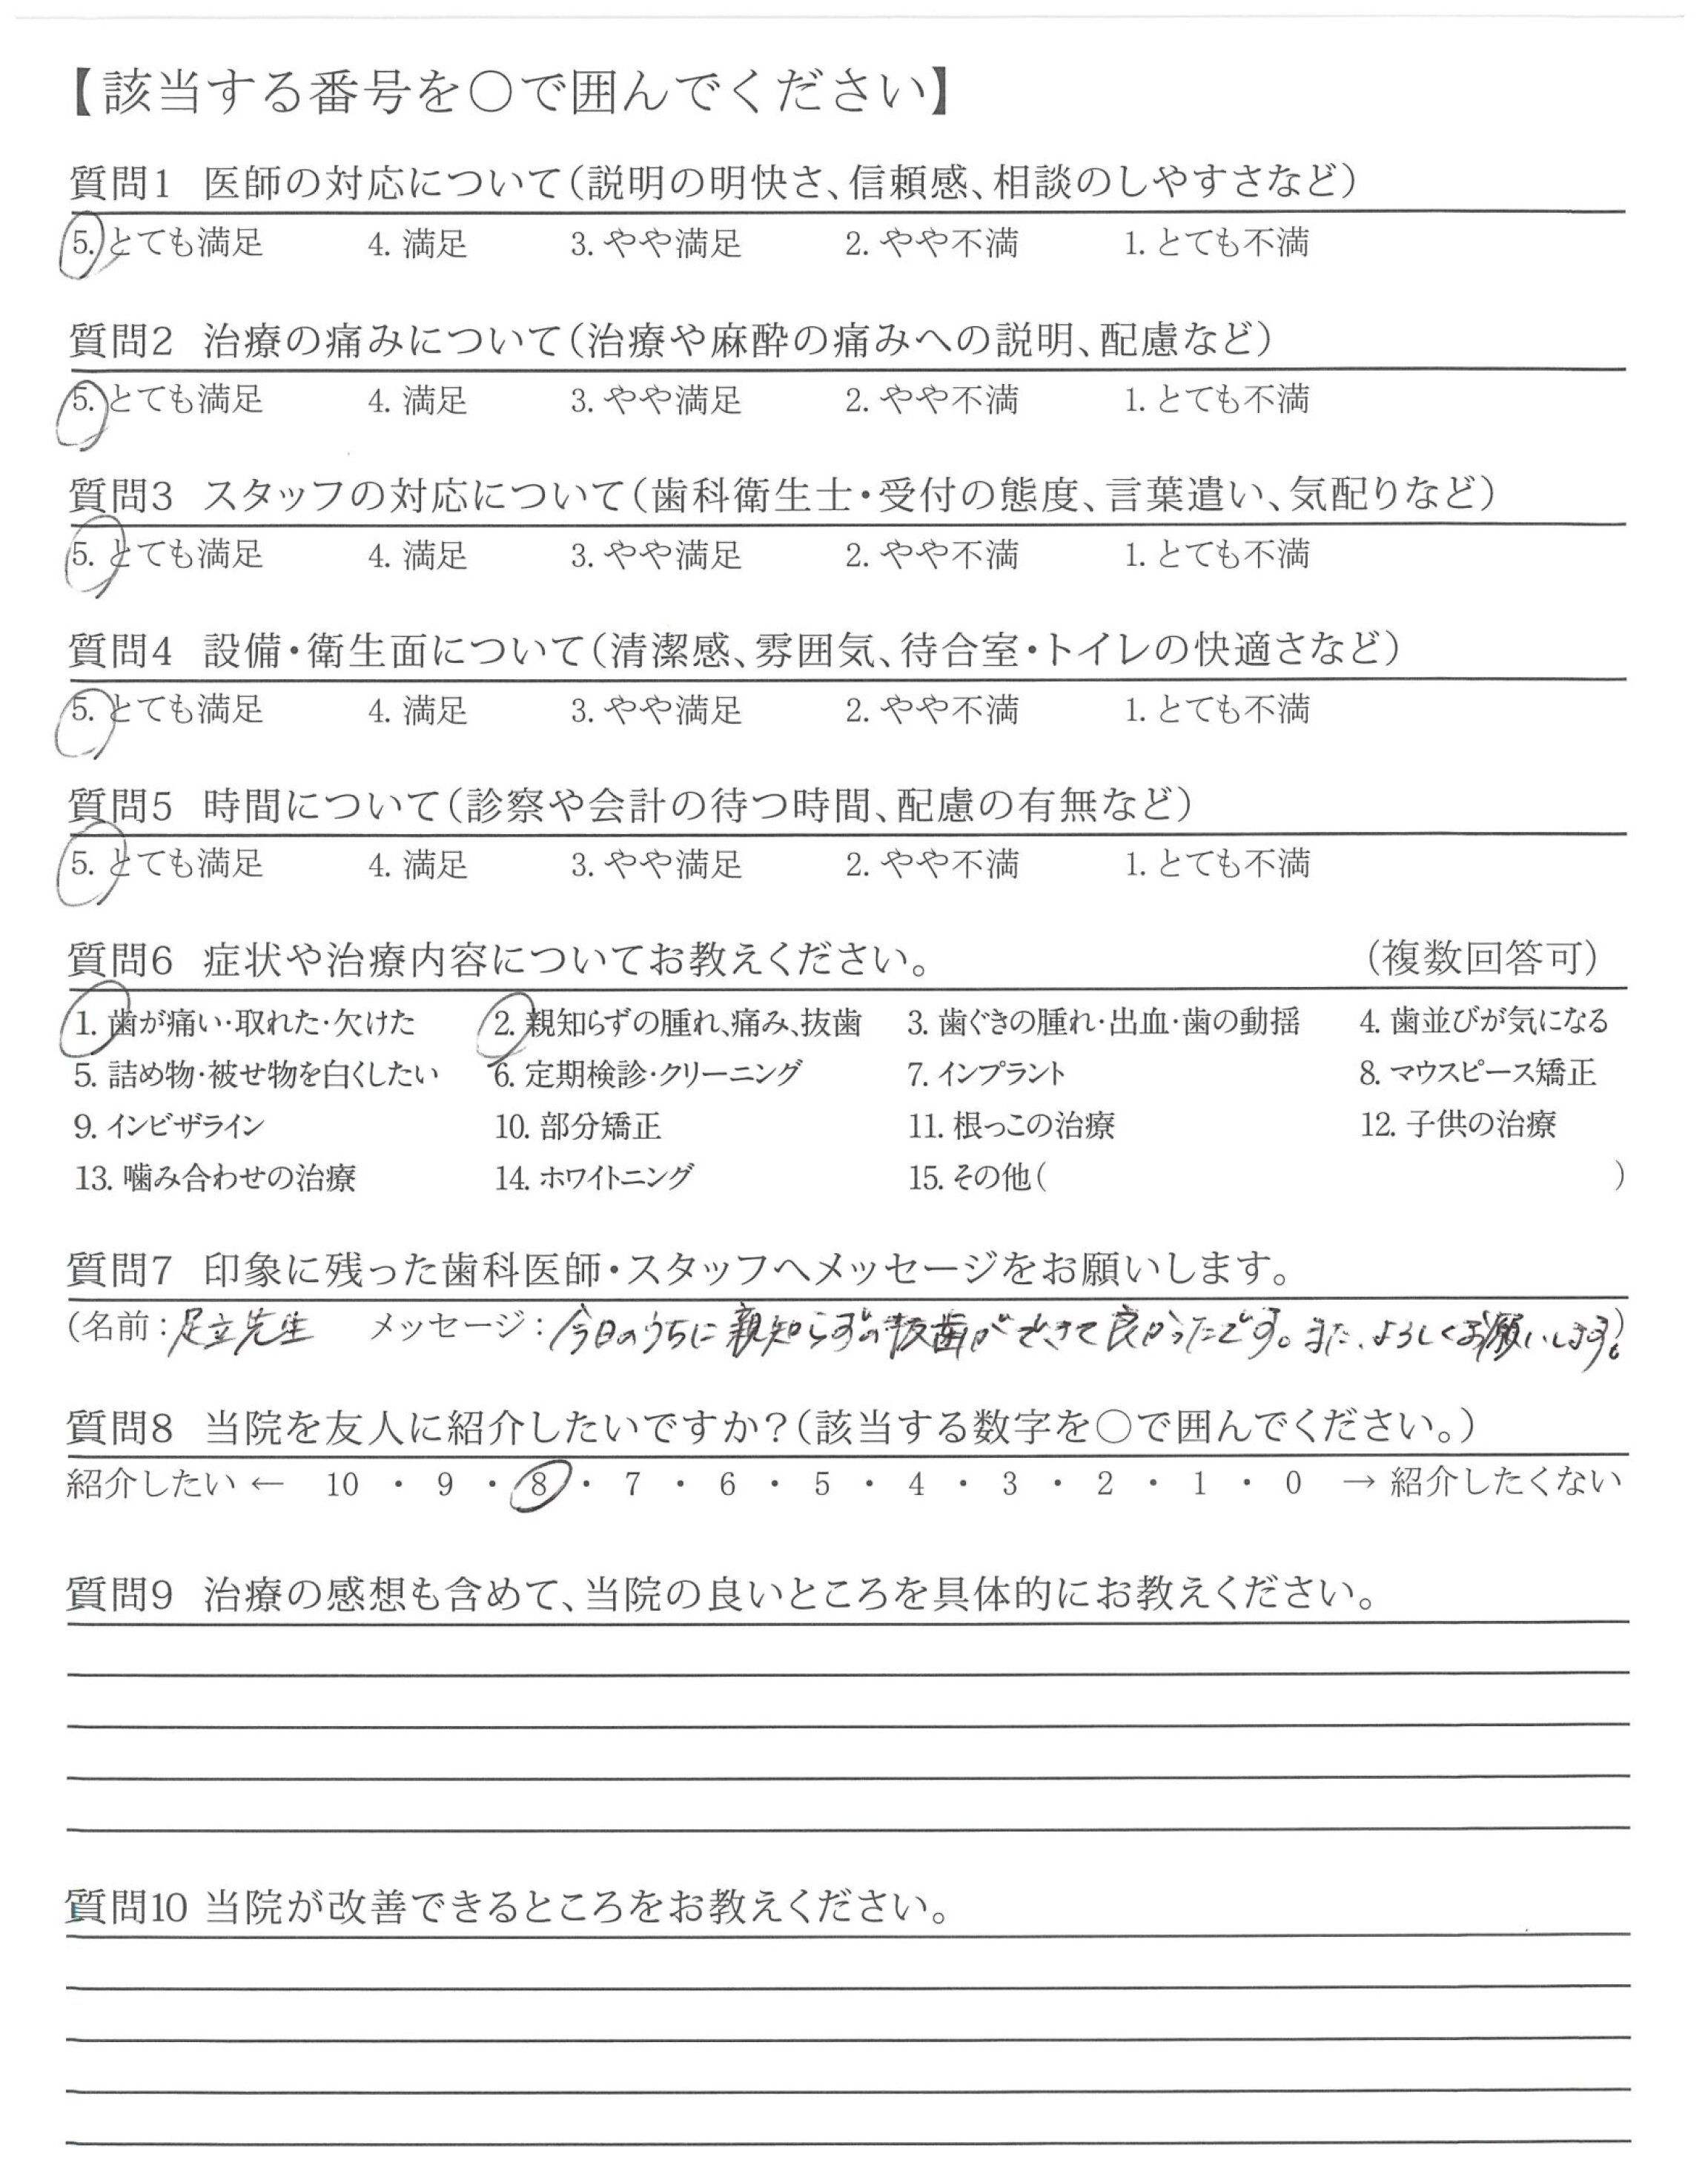 【該当する番号を○で囲んでください】
質問1 医師の対応について(説明の明快さ、信頼感、相談のしやすさなど)
5. とても満足 4. 満足 3. やや満足 2. やや不満 1. とても不満
質問2 治療の痛みについて(治療や麻酔の痛みへの説明、配慮など)
5. とても満足 4. 満足 3. やや満足 2. やや不満 1. とても不満
質問3 スタッフの対応について(歯科衛生士・受付の態度、言葉遣い、気配りなど)
5. とても満足 4. 満足 3. やや満足 2. やや不満 1. とても不満
質問4 設備・衛生面について(清潔感、雰囲気、待合室・トイレの快適さなど)
5. とても満足 4. 満足 3. やや満足 2. やや不満 1. とても不満
質問5 時間について(診察や会計の待つ時間、配慮の有無など)
5. とても満足 4. 満足 3. やや満足 2. やや不満 1. とても不満
質問6 症状や治療内容についてお教えください。 (複数回答可)
1. 歯が痛い・取れた・欠けた 2. 親知らずの腫れ、痛み、抜歯 3. 歯ぐきの腫れ・出血・歯の動揺 4. 歯並びが気になる
5. 詰め物・被せ物を白くしたい 6. 定期検診・クリーニング 7. インプラント 8. マウスピース矯正
9. インビザライン 10. 部分矯正 11. 根っこの治療 12. 子供の治療
13. 噛み合わせの治療 14. ホワイトニング 15. その他( )
質問7 印象に残った歯科医師・スタッフへメッセージをお願いします。
(名前:足立先生 メッセージ:今日のうちに親知らずの抜歯ができて良かったです。また、よろしくお願いします。)
質問8 当院を友人に紹介したいですか?(該当する数字を○で囲んでください。)
紹介したい ← 10 ・ 9 ・ 8 ・ 7 ・ 6 ・ 5 ・ 4 ・ 3 ・ 2 ・ 1 ・ 0 → 紹介したくない
質問9 治療の感想も含めて、当院の良いところを具体的にお教えください。
質問10 当院が改善できるところをお教えください。